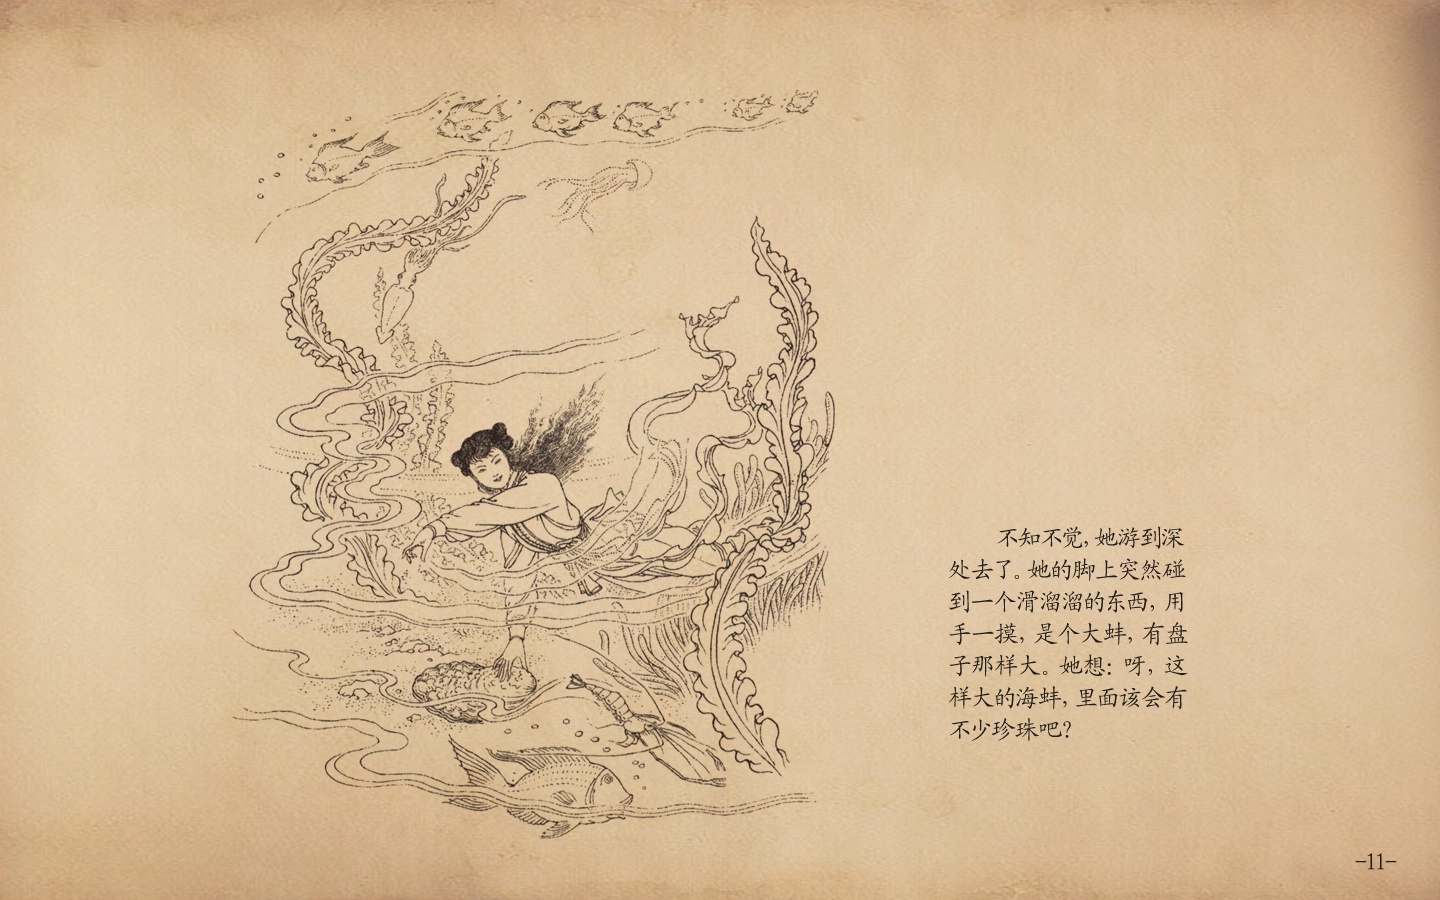 不知不觉，她游到深
处去了。她的脚上突然碰
到一个滑溜溜的东西，用
手一摸，是个大蚌，有盘
子那样大。她想：呀，这
样大的海蚌，里面该会有
不少珍珠吧？
-11-